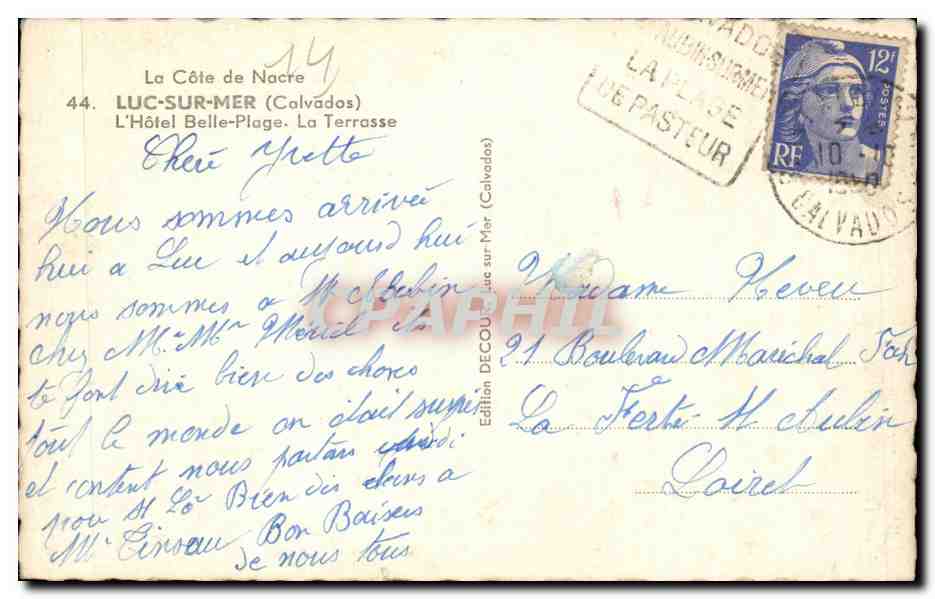 14
La Côte de Nacre
44. LUC-SUR-MER (Calvados)
L'Hôtel Belle-Plage. La Terrasse
Cheré Yvette
Nous sommes arrivée
hui a Luc et aujourd hui
nous sommes a St Aubin
chez Mr Mm
te font dire bien des choses
tout le monde on était surpris
et content nous partons
pour St Lô Bien des choses a
Mr Bon Baisers
de nous tous
Edition DECOUR, Luc sur Mer (Calvados)
CPAPHIL
LA PLAGE
DE PASTEUR
12F
POSTES
RF
10
CALVADOS
Madame Neveu
21 Boulevard Maréchal Foch
La Ferté St Aubin
Loiret